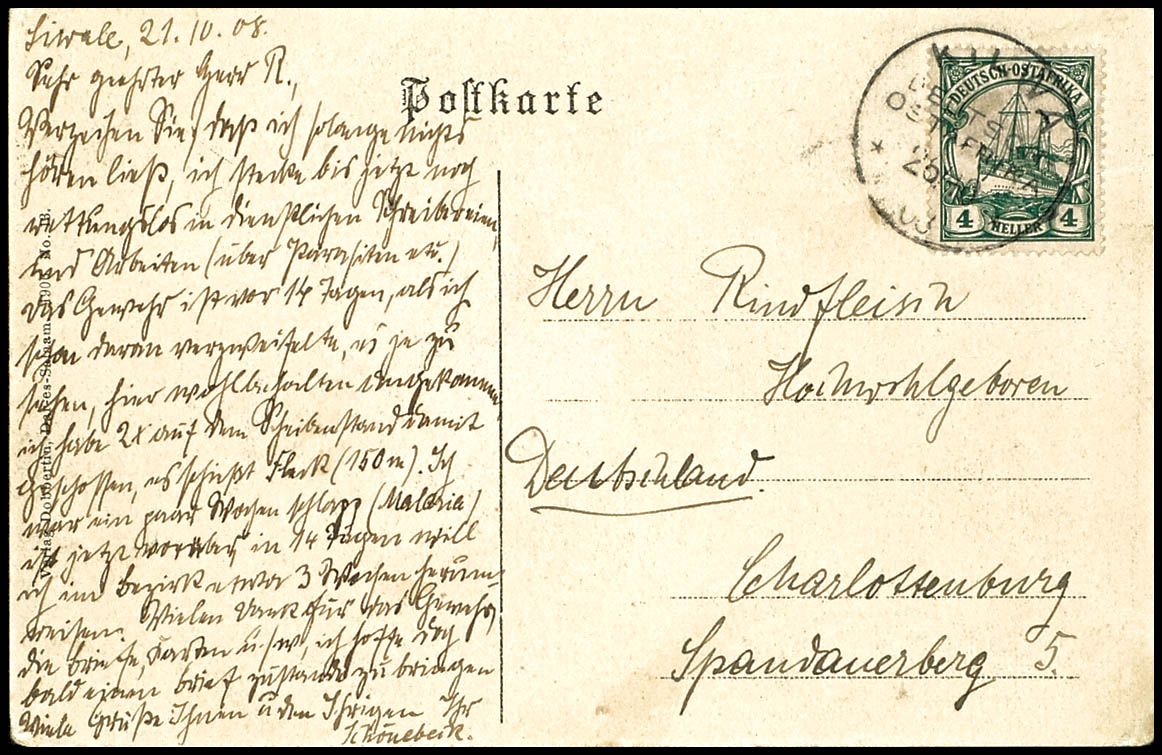 Liwale, 21.10.08.
Sehr geehrter Herr R.,
Verzeihen Sie, daß ich solange nichts
hören ließ, ich stecke bis jetzt noch
rettungslos in dienstlichen Schreibereien,
und Arbeiten (über Parasiten etc.)
Das Gewehr ist vor 14 Tagen, als ich
schon daran verzweifelte, es je zu
sehen, hier wohlbehalten angekommen
ich habe 2x auf dem Scheibenstand damit
geschossen, es schießt Fleck (150 m). Ich
war ein paar Wochen schlapp (Malaria)
ist jetzt vorüber, in 14 Tagen will
ich im Bezirk etwa 3 Wochen herum
reisen. Vielen Dank für das Gewehr,
die Briefe, Karten u.s/w, ich hoffe doch
bald einen Brief zustande zu bringen
Viele Grüße Ihnen u den Ihrigen Ihr
Schönebeck.
Verlag Dobbertin, Dar-es-Salaam No. B.
Postkarte
KILWA
DEUTSCH
OSTAFRIKA
DEUTSCH-OSTAFRIKA
4 HELLER 4
Herrn Rindfleisch
Hochwohlgeboren
Deutschland.
Charlottenburg
Spandauerberg 5.